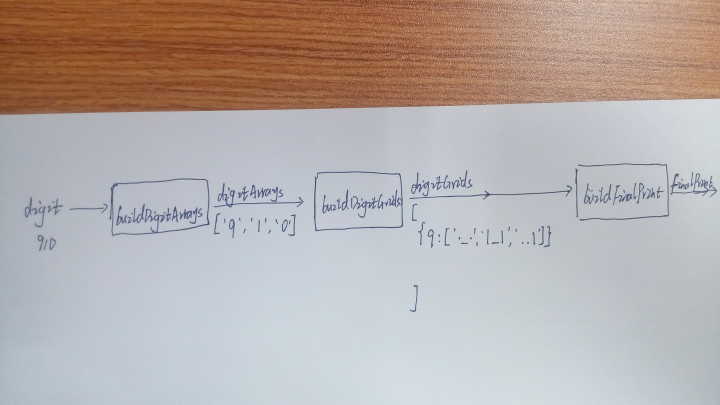 digit
910
buildDigitArrays
digitArrays
['9','1','0']
buildDigitGrids
digitGrids
[
{9:['._.','|_|','..|']}
]
buildFinalPrint
finalPrint